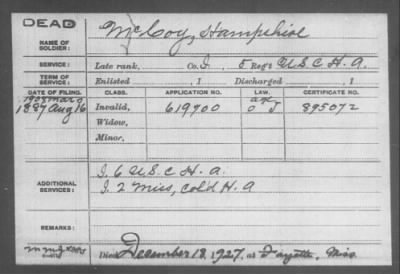 DEAD
NAME OF SOLDIER: McCoy, Hampshire
SERVICE: Late rank, Co. I, 5 Reg't U S C H. A.
TERM OF SERVICE: Enlisted , 1 Discharged , 1
DATE OF FILING. CLASS. APPLICATION NO. LAW. CERTIFICATE NO.
1887 Aug 16 Invalid, 619700 895072
Widow,
Minor,
ADDITIONAL SERVICES: I. 6 U.S. C H. a.
I. 2 Miss, Cold H. A
REMARKS:
Died December 18, 1927, at Fayette, Miss.